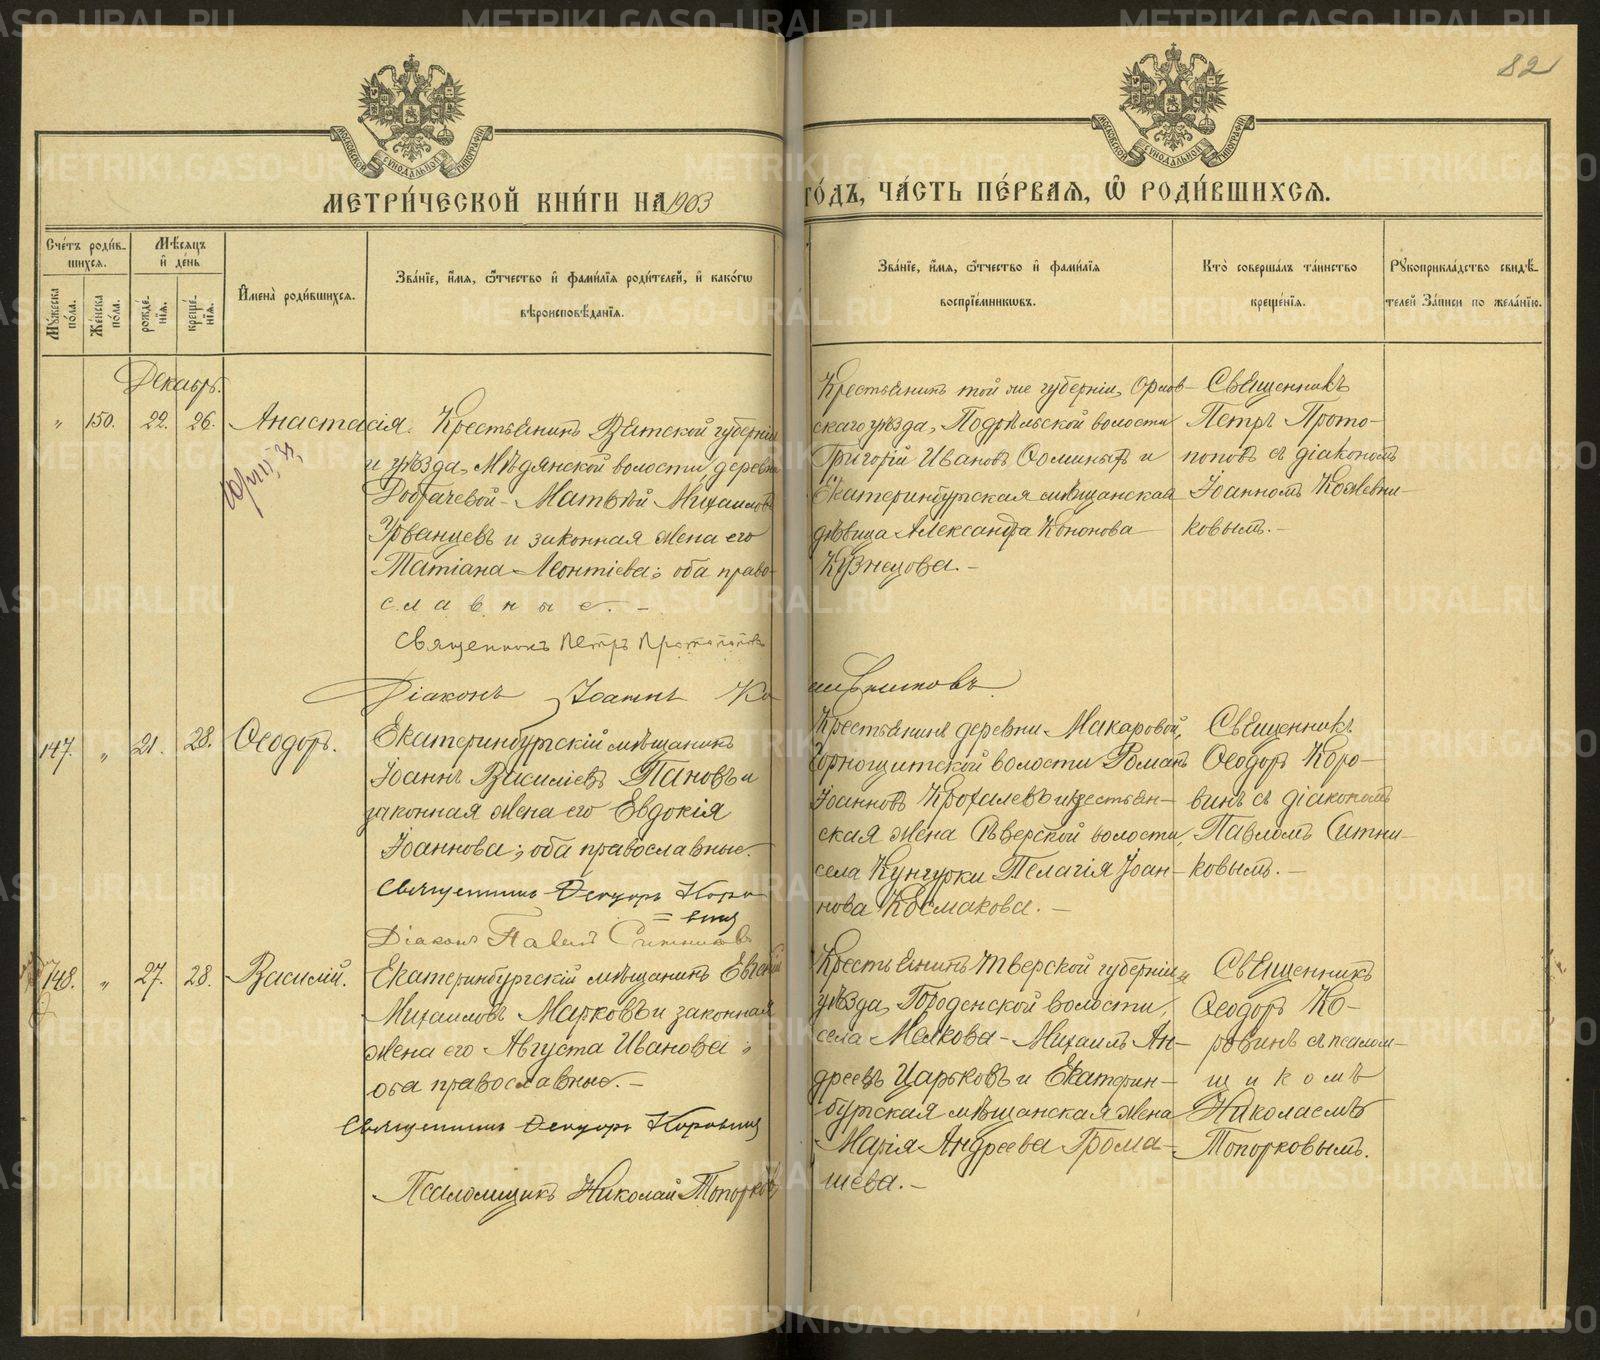 82
МЕТРИ́ЧЕСКОЙ КНИ́ГИ НА 1903 ГО́ДЪ, ЧА́СТЬ ПЕ́РВАЯ, Ѡ РОДИ́ВШИХСЯ.
Сче́тъ роди́вшихся.
Мꙋ́жеска по́ла.
Же́нска по́ла.
Мѣ́сяцъ и҆ де́нь
рожде́нїя.
креще́нїя.
И҆мена̀ роди́вшихся.
Зва́нїе, и҆́мя, ѻ҆́тчество и҆ фами́лїя роди́телей, и҆ како́гѡ
вѣроисповѣ́данїя.
Зва́нїе, и҆́мя, ѻ҆́тчество и҆ фами́лїя
воспрїе́мниковъ.
Кто̀ соверша́лъ та́инство
креще́нїя.
Рꙋкоприкла́дство свидѣ́телей за́писи по жела́нїю.
Декабрь.
" 150. 22. 26. Анастасія.
Крестьянинъ Вятской губерніи
и уѣзда, Мѣдянской волости деревни
Матвѣй Михаиловъ
Урванцевъ и законная жена его
Татіана Леонтіева; оба право-
славные. -
Священникъ Петръ Протопоповъ
Діаконъ Іоаннъ Кожевниковъ
Крестьянинъ той же губерніи, Орлов-
скаго уѣзда, волости
Григорій Ивановъ и
Екатеринбургская мѣщанская
дѣвица Александра Кононова
Кузнецова. -
Священникъ
Петръ Прото-
поповъ съ діакономъ
Іоанномъ Кожевни-
ковымъ. -
147. " 21. 28. Ѳеодоръ.
Екатеринбургскій мѣщанинъ
Іоаннъ Василіевъ Пановъ и
законная жена его Евдокія
Іоаннова; оба православные.
Священникъ Ѳеодоръ Коро-
винъ
Діаконъ Павелъ Ситниковъ
Крестьянинъ деревни Макаровой,
Горнощитской волости Романъ
Іоанновъ Крохалевъ и крестьян-
ская жена Сѣверской волости,
села Кунгурки Пелагія Іоан-
нова Космакова. -
Священникъ
Ѳеодоръ Коро-
винъ съ діакономъ
Павломъ Ситни-
ковымъ. -
148. " 27. 28. Василій.
Екатеринбургскій мѣщанинъ Евгеній
Михаиловъ Марковъ и законная
жена его Августа Иванова;
оба православные. -
Священникъ Ѳеодоръ Коровинъ
Псаломщикъ Николай Топорковъ
Крестьянинъ Тверской губерніи и
уѣзда, Городенской волости,
села Мелкова - Михаилъ Ан-
дреевъ Царьковъ и Екатерин-
бургская мѣщанская жена
Марія Андреева Грома-
шева. -
Священникъ
Ѳеодоръ Ко-
ровинъ съ псалом-
щикомъ
Николаемъ
Топорковымъ.
METRIKI.GASO-URAL.RU